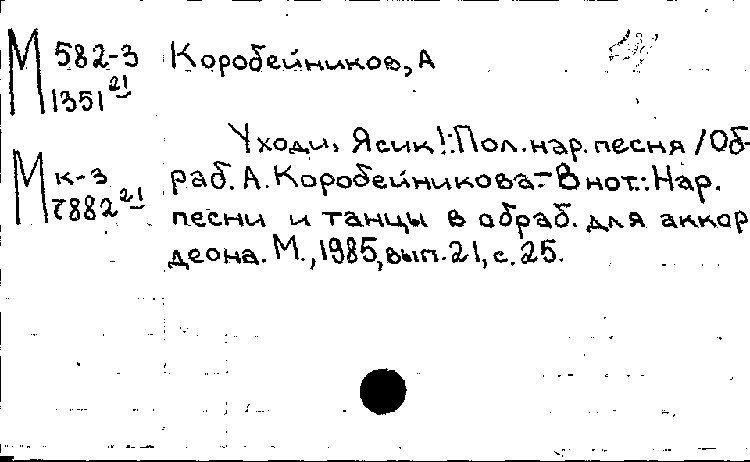 М 582-3 Коробейников, А
1351 21
Уходи, Ясик!: Пол. нар. песня / Об-
М к-3 раб. А. Коробейникова.- В нот.: Нар.
7882 21 песни и танцы в обраб. для аккор
деона. М., 1985, вып. 21, с. 25.